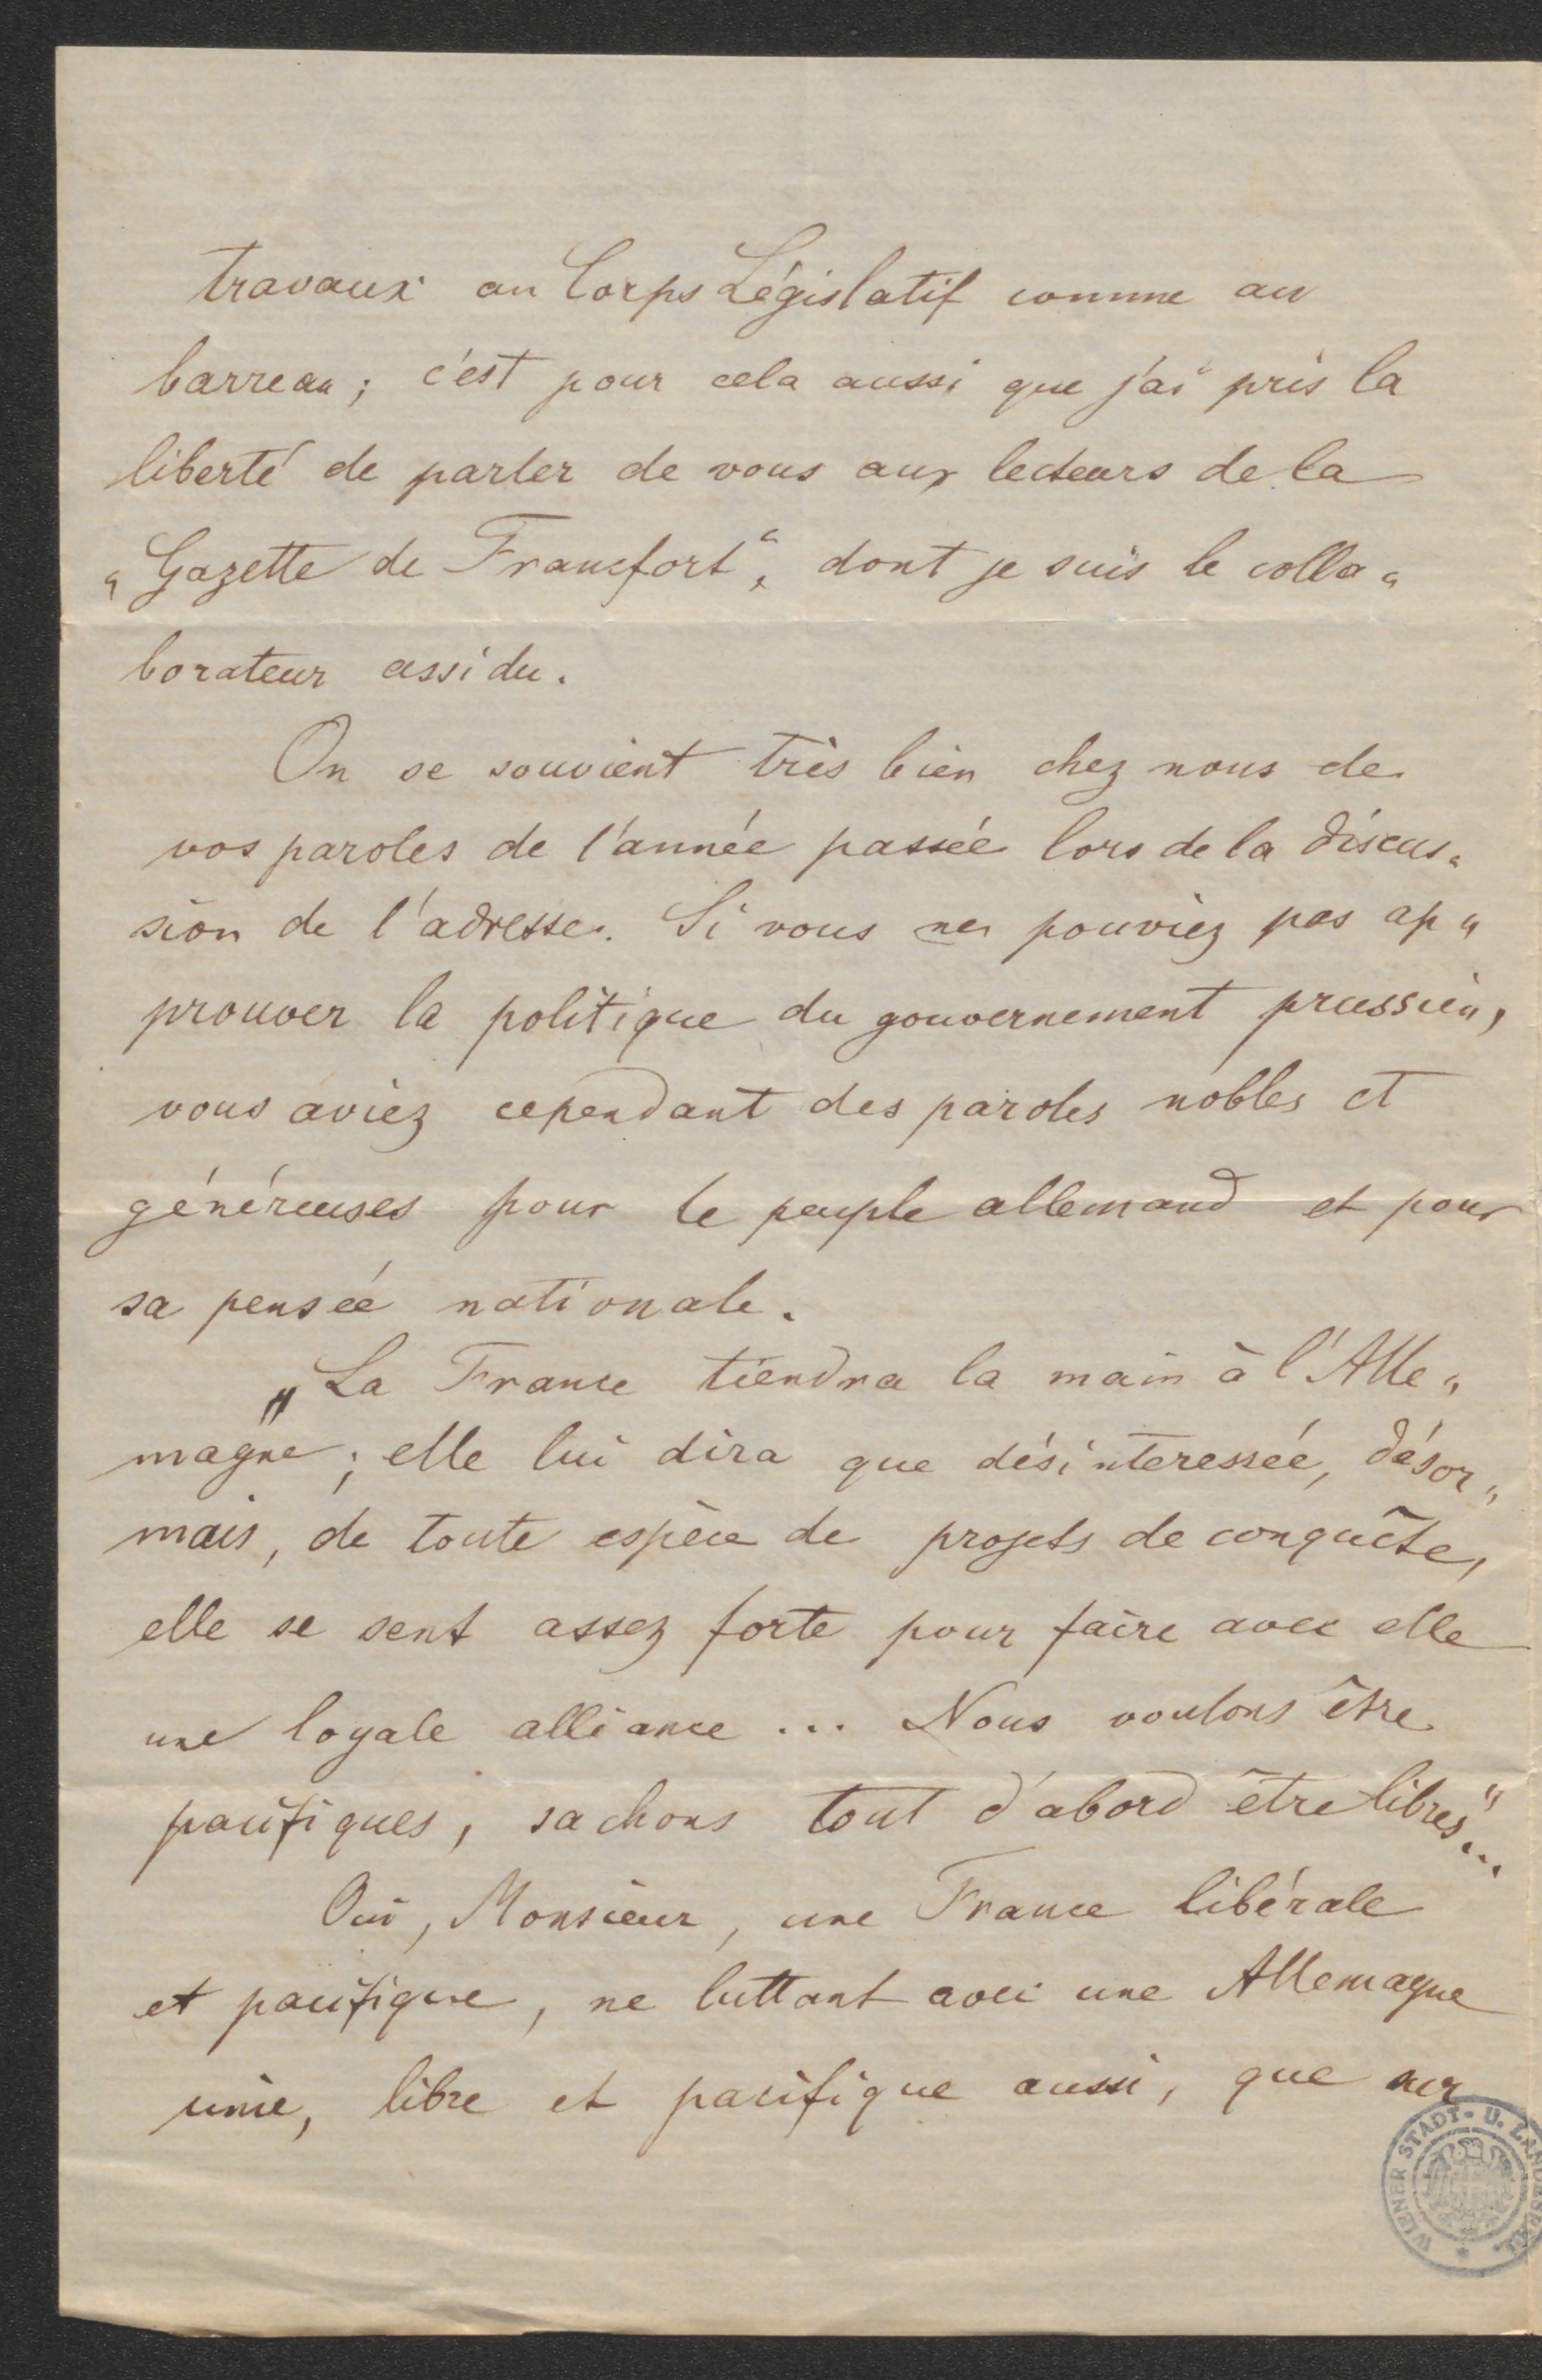 travaux au Corps Législatif comme au
barreau; c'est pour cela aussi que j'ai pris la
liberté de parler de vous aux lecteurs de la
„Gazette de Francfort“, dont je suis le colla„
borateur assidu.
On se souvient très bien chez nous de
vos paroles de l'année passée lors de la discus„
sion de l'adresse. Si vous ne pouviez pas ap„
prouver la politique du gouvernement prussien,
vous aviez cependant des paroles nobles et
généreuses pour le peuple allemand et pour
sa pensée nationale.
„La France tiendra la main à l'Alle„
magne; elle lui dira que désinteressée, désor„
mais, de toute espèce de projets de conquête,
elle se sent assez forte pour faire avec elle
une loyale alliance ... Nous voulons être
pacifiques, sachons tout d'abord être libres“...
Oui, Monsieur, une France libérale
et pacifique, ne luttant avec une Allemagne
unie, libre et pacifique aussi, que sur
WIENER STADT- U. LANDESBIBL